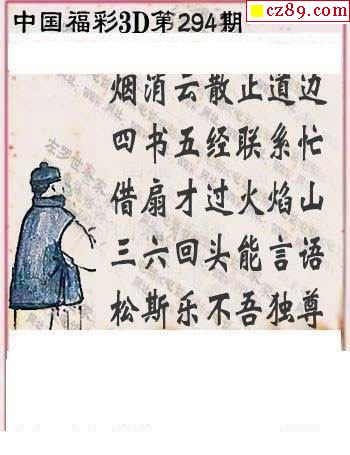 cz89.com
中国福彩3D第294期
烟消云散止道边
四书五经联系忙
借扇才过火焰山
三六回头能言语
松斯乐不吾独尊